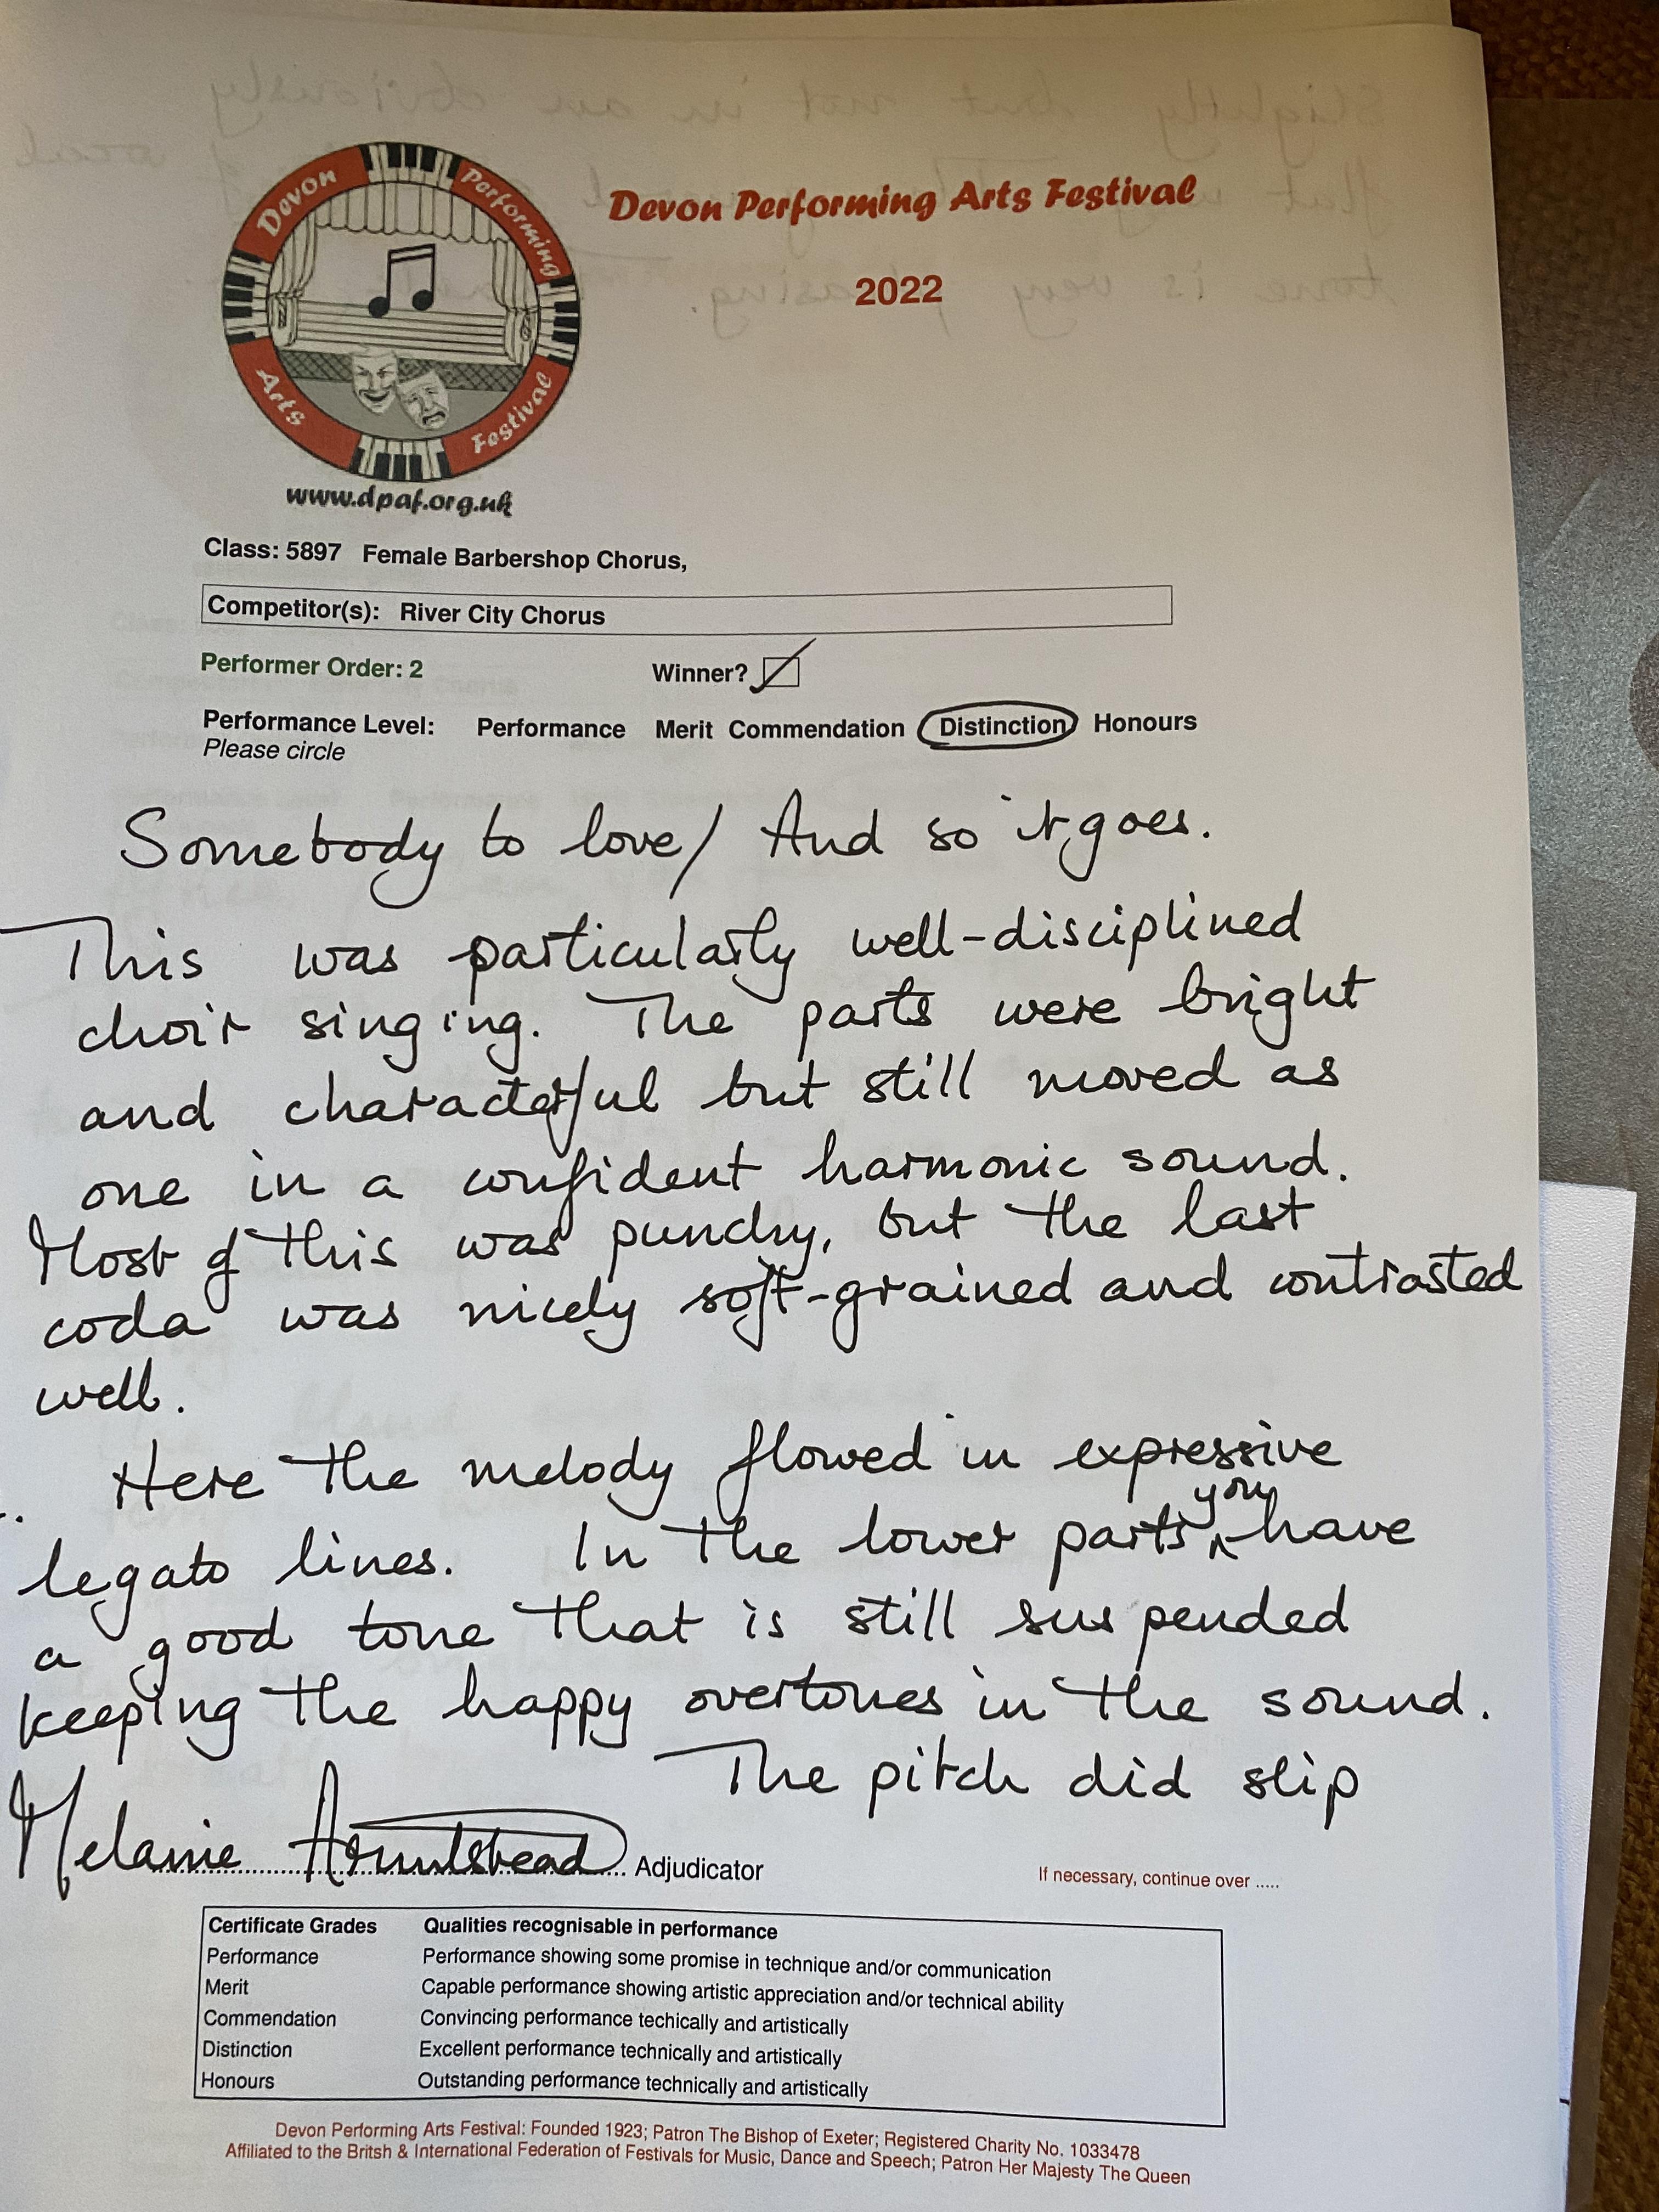 Devon Performing Arts Festival
Devon Performing Arts Festival
2022
www.dpaf.org.uk
Class: 5897 Female Barbershop Chorus,
Competitor(s): River City Chorus
Performer Order: 2 Winner?
Performance Level: Performance Merit Commendation Distinction Honours
Please circle
Somebody to love/ And so it goes.
This was particularly well-disciplined
choir singing. The parts were bright
and characterful but still moved as
one in a confident harmonic sound.
Most of this was punchy, but the last
coda was nicely soft-grained and contrasted
well.
Here the melody flowed in expressive
legato lines. In the lower parts you have
a good tone that is still suspended
keeping the happy overtones in the sound.
The pitch did slip
Melanie Armitstead Adjudicator
If necessary, continue over .....
Certificate Grades Qualities recognisable in performance
Performance Performance showing some promise in technique and/or communication
Merit Capable performance showing artistic appreciation and/or technical ability
Commendation Convincing performance techically and artistically
Distinction Excellent performance technically and artistically
Honours Outstanding performance technically and artistically
Devon Performing Arts Festival: Founded 1923; Patron The Bishop of Exeter; Registered Charity No. 1033478
Affiliated to the Britsh & International Federation of Festivals for Music, Dance and Speech; Patron Her Majesty The Queen